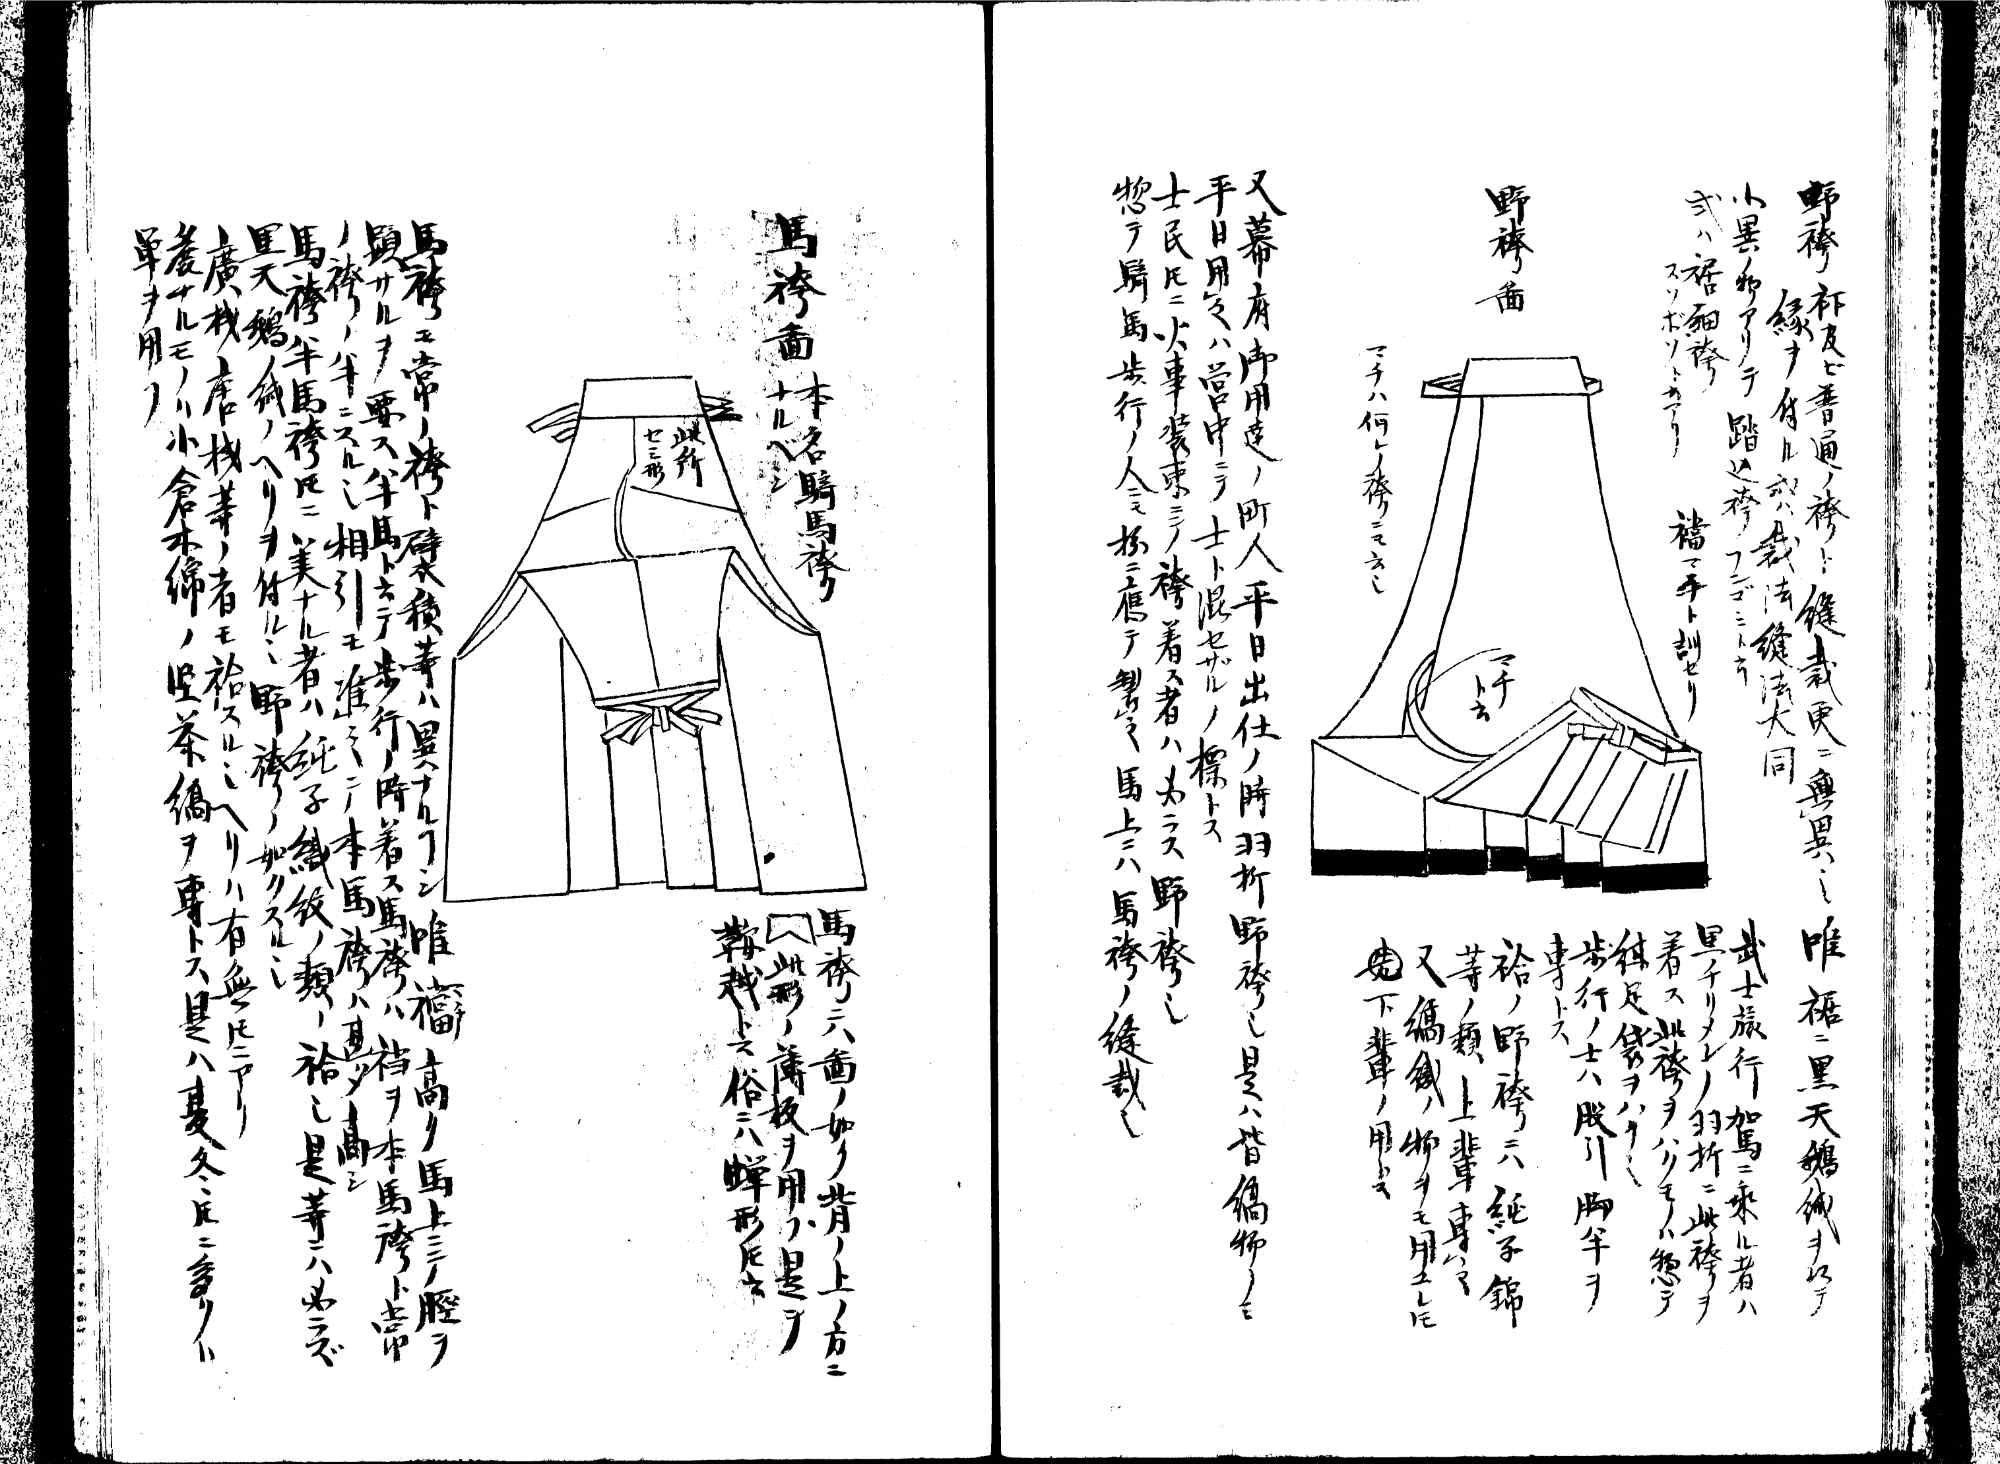 野袴 裄及ビ普通ノ袴ト縫裁更ニ無異也 唯裾ニ黒天鵞絨ヲ以テ
縁ヲ付ル 裁法縫法大同
小異ノ物アリテ踏込袴 フンゴミト云
或ハ裾細袴
スソボソト云アリ
襠マチト訓セリ
野袴図
マチハ何レノ袴ニモ云也
マチト云
武士旅行駕ニ乗ル者ハ
黒チリメンノ羽折ニ此袴ヲ
着ス此袴ヲハクモノハ惣テ
韈足袋ヲハク也
歩行ノ士ハ股引脚半ヲ
専トス
袷ノ野袴ニハ純子錦
等ノ類上輩専ハラ
又縞織ノ物ヲモ用ユレ𪜈
先下輩ノ用也
又幕府御用達ノ町人平日出仕ノ時羽折野袴也是ハ皆縞物ノミ
平日用之ハ営中ニテ士ト混セザルノ標トス
士民𪜈ニ火事装束ニノ袴着ス者ハ必ラス野袴也
惣テ騎馬歩行ノ人ニモ撡ニ応テ製之馬上ニハ馬袴ノ縫裁也
馬袴図 本名騎馬袴
ナルベシ
此所
セミ形
馬袴ニハ図ノ如ク背ノ上ノ方ニ
此形ノ薄板ヲ用フ是ヲ
鞍越ト云俗ニハ蝉形𪜈云
馬袴モ常ノ袴ト襞積等ハ異ナルコトナシ唯襠高ク馬上ニテ脛ヲ
マチ
顕サルヲ要ス半馬ト云テ歩行ノ時着ス馬袴ハ襠ヲ本馬袴ト常
ノ袴ノ半ニスル也相引モ准之ニノ本馬袴ハ甚タ高シ
馬袴半馬袴𪜈ニ美ナル者ハ純子織紋ノ類ノ袷也是等ニハ必ラズ
黒天鵞絨ノヘリヲ付ル也野袴ノ如クスル也
広桟唐桟等ノ者モ袷スル也ヘリハ有無𪜈ニアリ
麁ナルモノハ小倉木綿ノ堅茶縞ヲ専トス是ハ夏冬𪜈ニ多クハ
単ヲ用フ